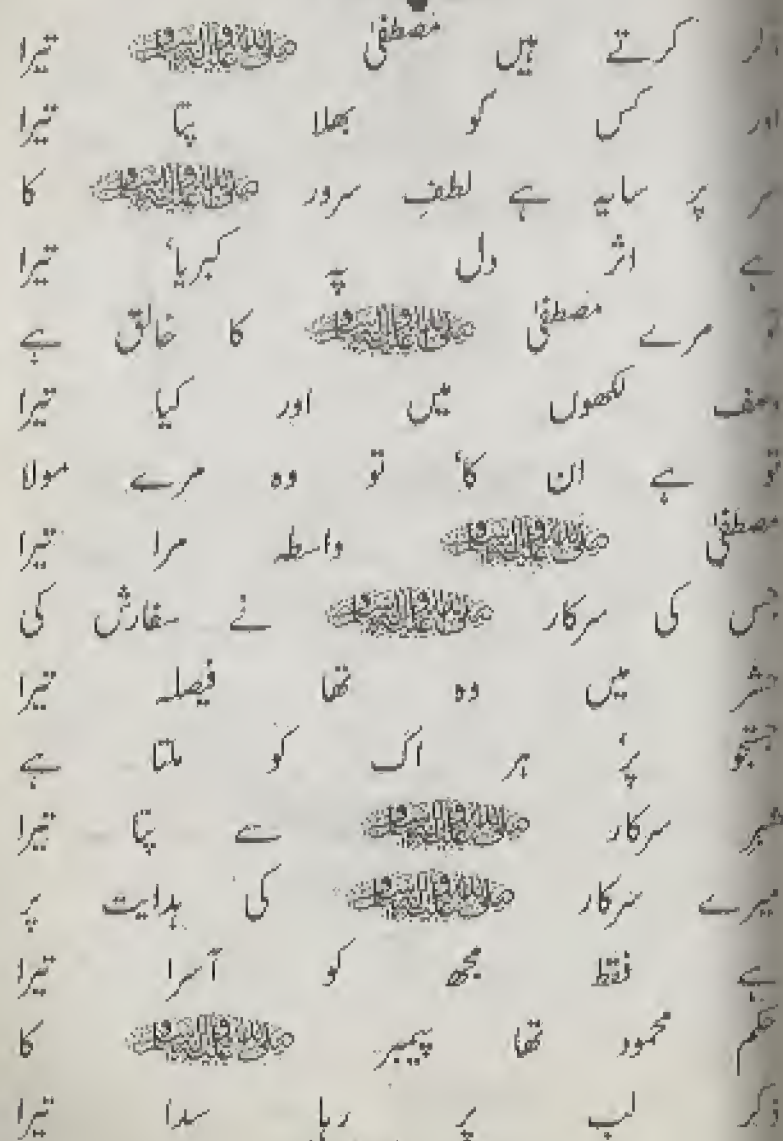 ذکر کرتے ہیں مصطفیٰ صلی اللہ علیہ وآلہ وسلم تیرا
اور کس کو بھلا پتا تیرا
سر پر سایہ ہے لطفِ سرور صلی اللہ علیہ وآلہ وسلم کا
ہے اثر دل پہ کبریا' تیرا
تو مرے مصطفیٰ صلی اللہ علیہ وآلہ وسلم کا خالق ہے
وصف لکھوں میں اور کیا تیرا
تو ہے ان کا' تو وہ مرے مولا
مصطفیٰ صلی اللہ علیہ وآلہ وسلم واسطہ مرا تیرا
جس کی سرکار صلی اللہ علیہ وآلہ وسلم نے سفارش کی
حشر میں وہ تھا فیصلہ تیرا
جستجو پر' ہر اک کو ملتا ہے
شہرِ سرکار صلی اللہ علیہ وآلہ وسلم سے پتا تیرا
میرے سرکار صلی اللہ علیہ وآلہ وسلم کی ہدایت پر
ہے فقط مجھ کو آسرا تیرا
حکم محمود تھا پیمبر صلی اللہ علیہ وآلہ وسلم کا
ذکر لب پر رہا سدا تیرا